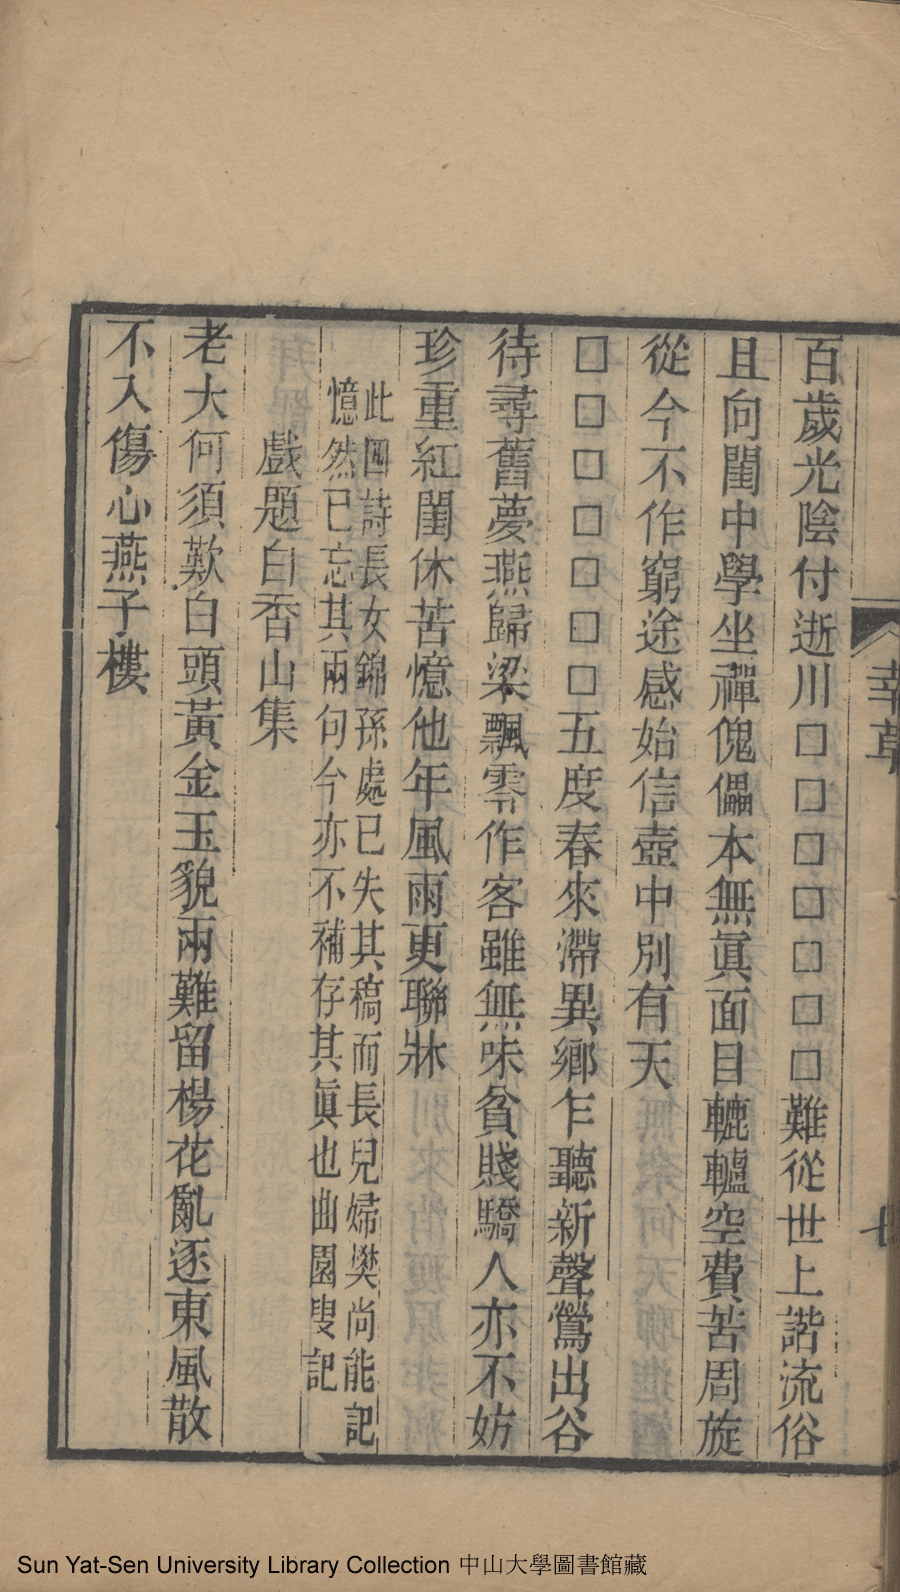 百歲光陰付逝川□□□□□□□難從世上諧流俗
且向閨中學坐禪傀儡本無眞面目轆轤空費苦周旋
從今不作窮途感始信壺中別有天
□□□□□□□五度春來滯異鄉乍聽新聲鶯出谷
待尋舊夢燕歸梁飄零作客雖無味貧賤驕人亦不妨
珍重紅閨休苦憶他年風雨更聯牀
此四詩長女錦孫處已失其稿而長兒婦樊尚能記
憶然已忘其兩句今亦不補存其眞也曲園叟記
戲題白香山集
老大何須歎白頭黃金玉貌兩難留楊花亂逐東風散
不入傷心燕子樓
Sun Yat-Sen University Library Collection 中山大學圖書館藏